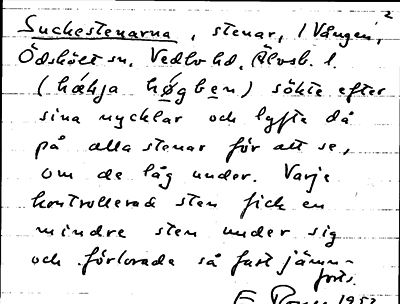 2
Suckestenarna, stenar, i Vången,
Ödskölt sn, Vedbo hd, Älvsb. l.
(hákja høgben) sökte efter
sina nycklar och lyfte då
på alla stenar för att se,
om de låg under. Varje
kontrollerad sten fick en
mindre sten under sig
och förlorade så fast jämn-
forts.
1952